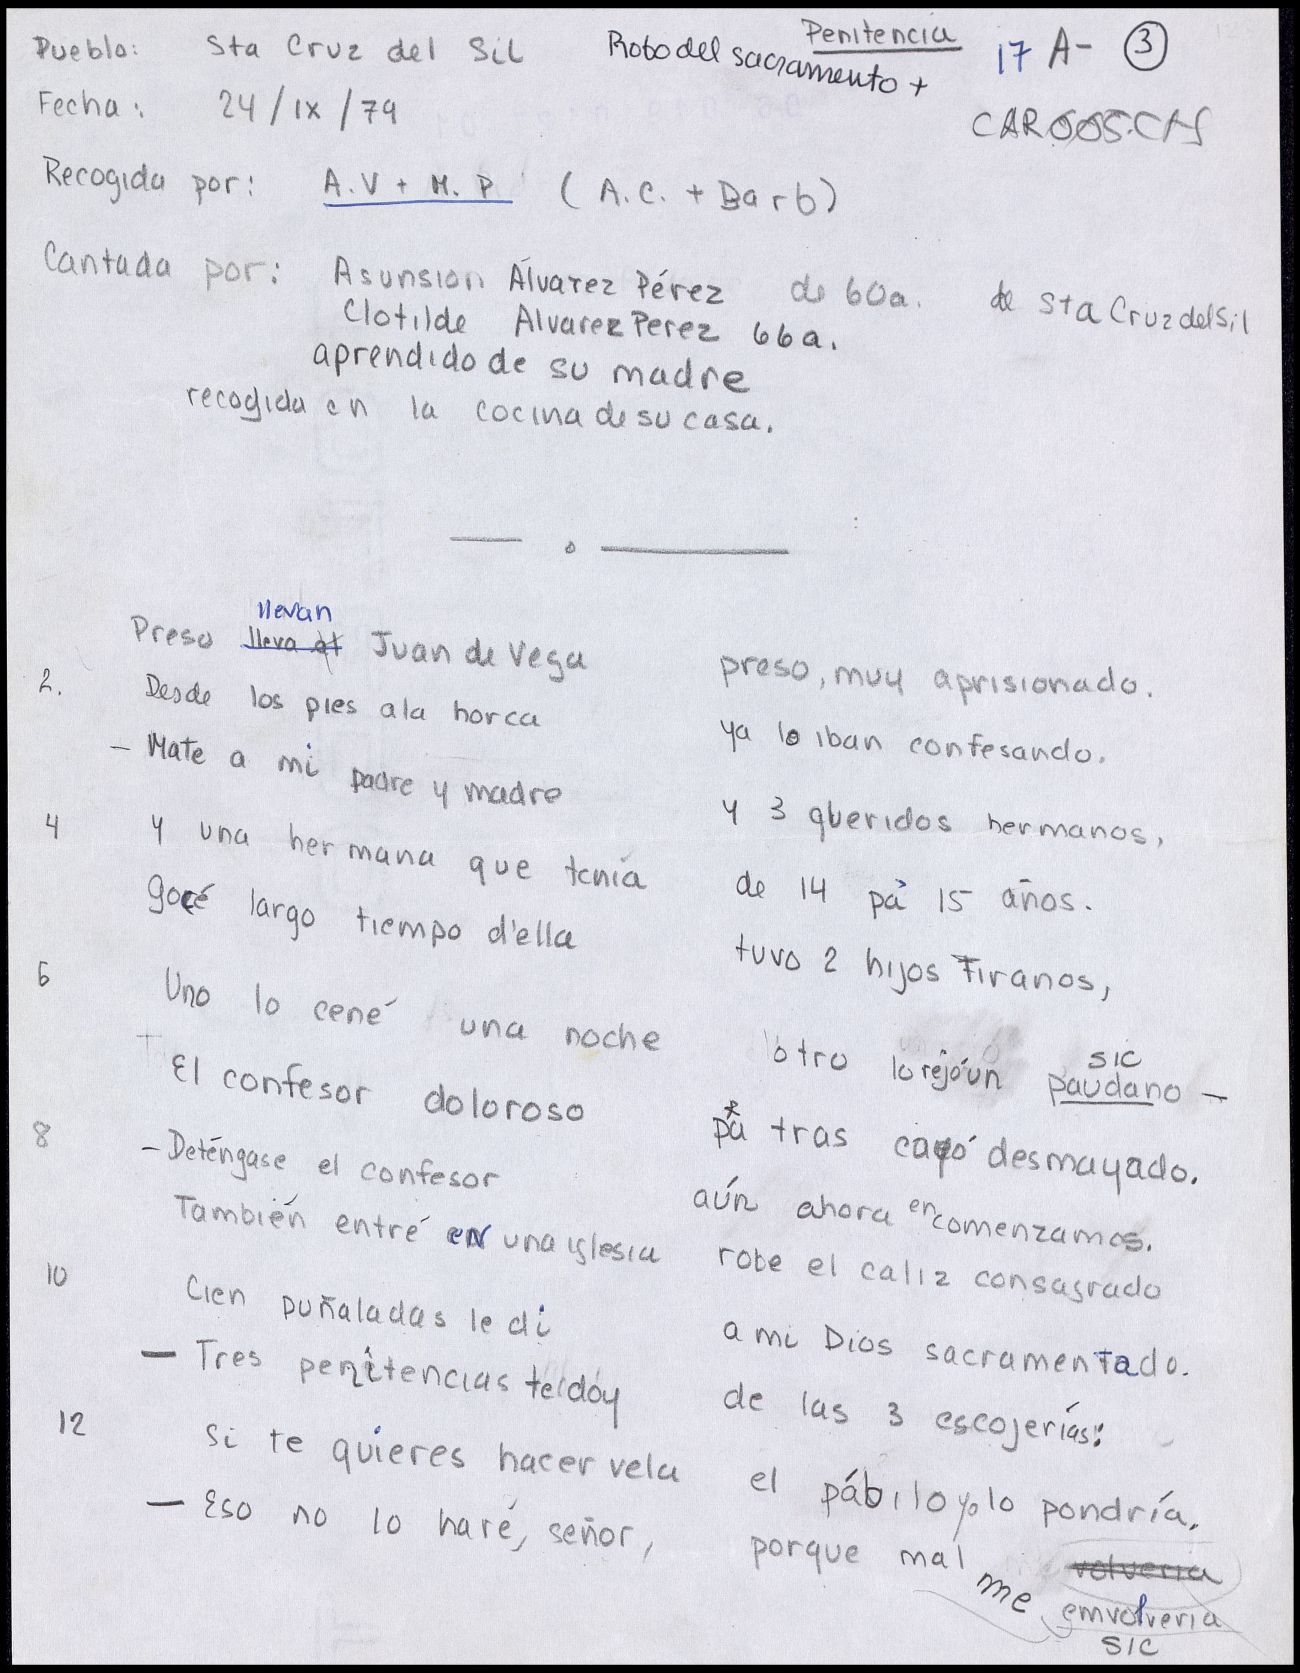 Pueblo: Sta Cruz del Sil
Penitencia
Robo del sacramento +
17 A- 3
Fecha: 24/IX/79
Recogida por: A.V + M.P (A.C. + Barb)
Cantada por: Asunsion Álvarez Pérez de 60a. de Sta Cruz del Sil
Clotilde Alvarez Perez 66a.
aprendido de su madre
recogida en la cocina de su casa.
llevan
Preso lleva at Juan de Vega preso, muy aprisionado.
2. Desde los pies ala horca ya lo iban confesando.
- Mate a mi padre y madre y 3 queridos hermanos,
4 y una hermana que tenía de 14 pa' 15 años.
gocé largo tiempo d'ella tuvo 2 hijos Tiranos,
6 Uno lo cené una noche lotro lo rejó un paudano -
SIC
El confesor doloroso pa tras cayó desmayado.
8 - Deténgase el confesor aún ahora encomenzamos.
También entré en una iglesia robe el caliz consagrado
10 Cien puñaladas le di a mi Dios sacramentado.
- Tres penitencias te doy de las 3 escojerías:
12 Si te quieres hacer vela el pábilo yo lo pondría.
- Eso no lo haré, señor, porque mal volveria
me emvolveria
SIC